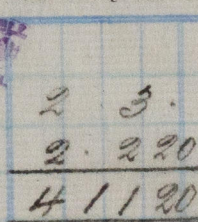 2 3.
2. 2 20
4 1 1 20